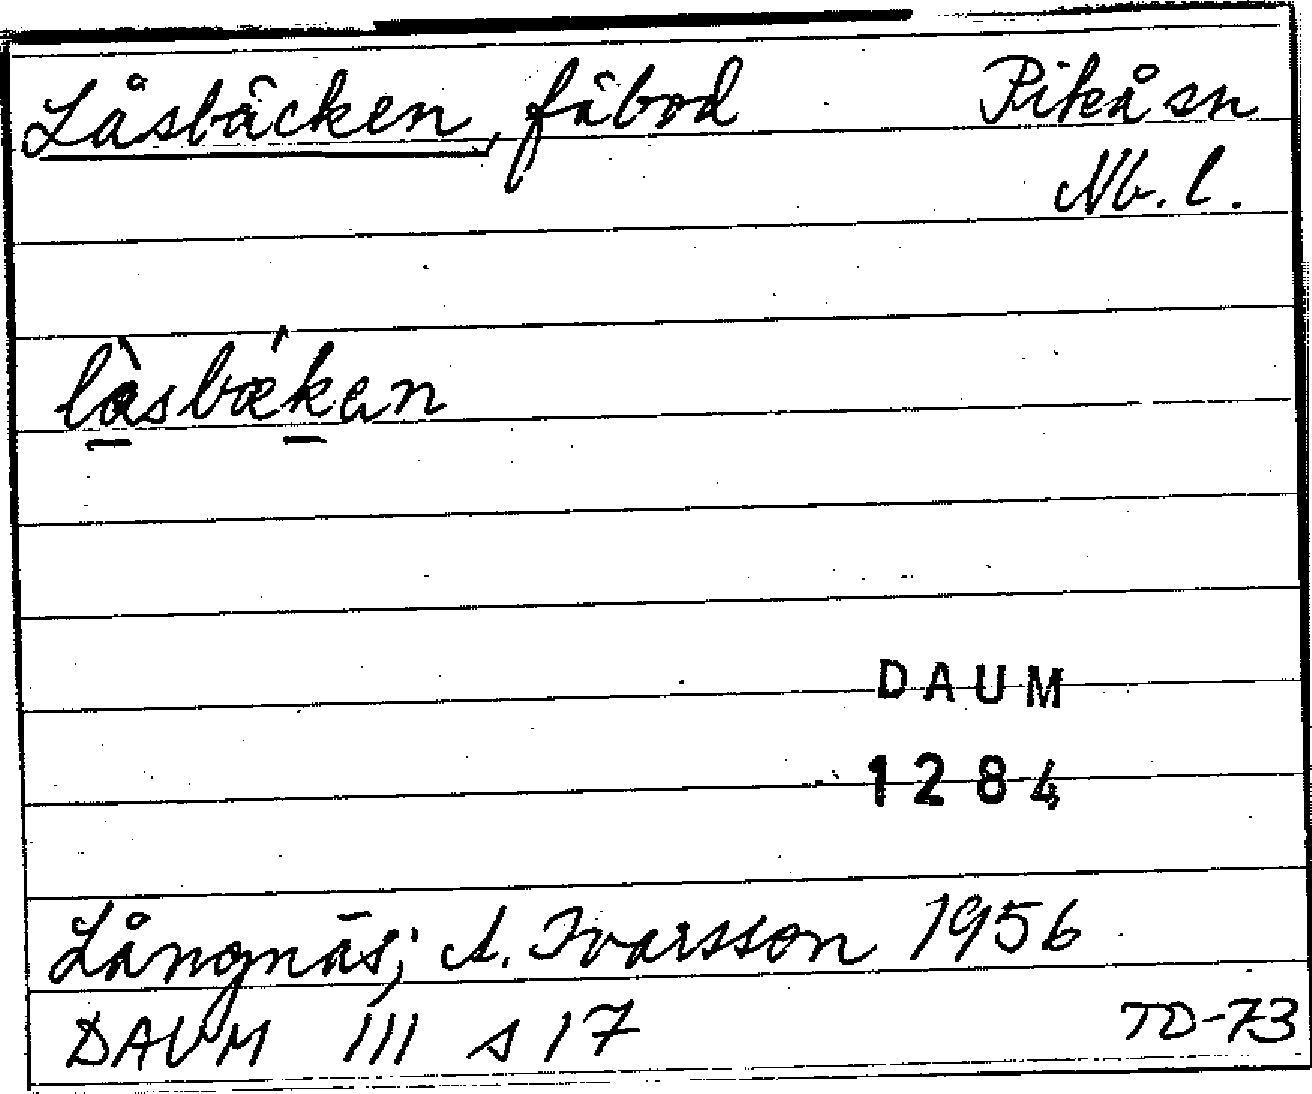 Låsbäcken, fäbod Piteå sn
Nb. l.
l̀åsbǽken
DAUM
1284
Långnäs; A. Ivarsson 1956
DAUM III s 17 TD-73